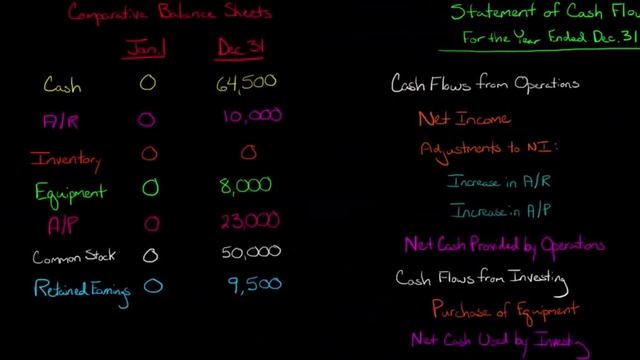 Comparative Balance Sheets
Jan. 1 Dec 31
Cash 0 64,500
A/R 0 10,000
Inventory 0 0
Equipment 0 8,000
A/P 0 23,000
Common Stock 0 50,000
Retained Earnings 0 9,500
Statement of Cash Flo
For the Year Ended Dec. 31
Cash Flows from Operations
Net Income
Adjustments to NI:
Increase in A/R
Increase in A/P
Net Cash Provided by Operations
Cash Flows from Investing
Purchase of Equipment
Net Cash Used by Investing